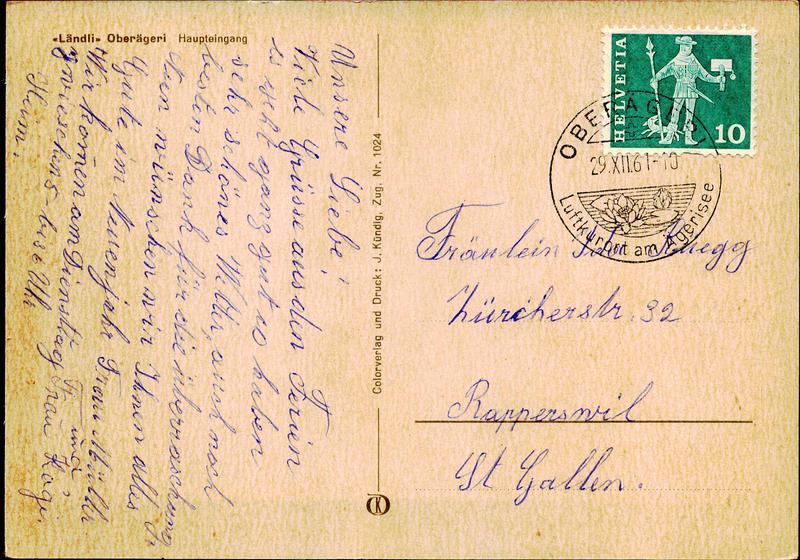 «Ländli» Oberägeri Haupteingang
Unsere Liebe!
Viele Grüsse aus den Ferien
es geht ganz gut so haben
sehr schönes Wetter, auch noch
besten Dank für die überraschung
den wünschen wir Ihnen alles
Gute im Neuenjahr Frau Müller
Wir komen am Dienstag und Frau Kägi.
zwieschens bis Uhr
Heim.
Colorverlag und Druck: J. Kündig, Zug. Nr. 1024
HELVETIA
10
OBERÄGERI
29.XII.61-10
Luftkurort am Ägerisee
Fräulein Rüegg
Zürcherstr. 32
Rapperswil
St Gallen.
K